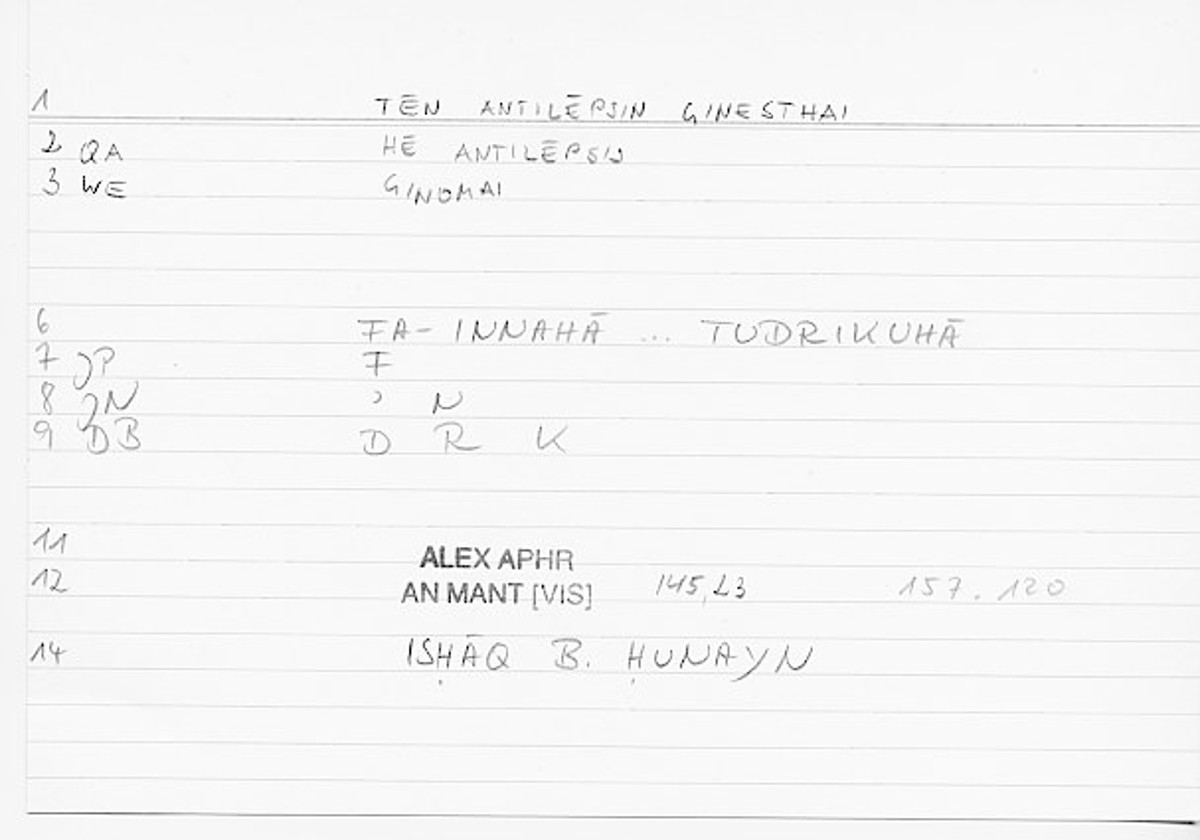 1 TĒN ANTILĒPSIN GINESTHAI
2 QA HĒ ANTILĒPSIS
3 WE GINOMAI
6 FA- INNAHĀ ... TUDRIKUHĀ
7 JP F
8 JN ʾ N
9 DB D R K
11 ALEX APHR
12 AN MANT [VIS] 145,23 157.120
14 ISḤĀQ B. ḤUNAYN